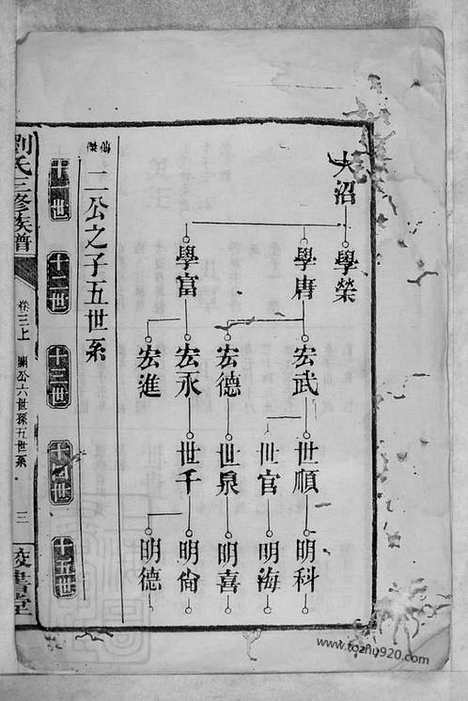 大沼
學榮
學唐
學富
宏武
宏德
宏永
宏進
世順
世官
世泉
世千
明科
明海
明喜
明倫
明德
仙傑二公之子五世系
十一世
十二世
十三世
十四世
十五世
劉氏三修族譜
卷三上
公六世孫五世系
三
書堂
www.tozhu920.com